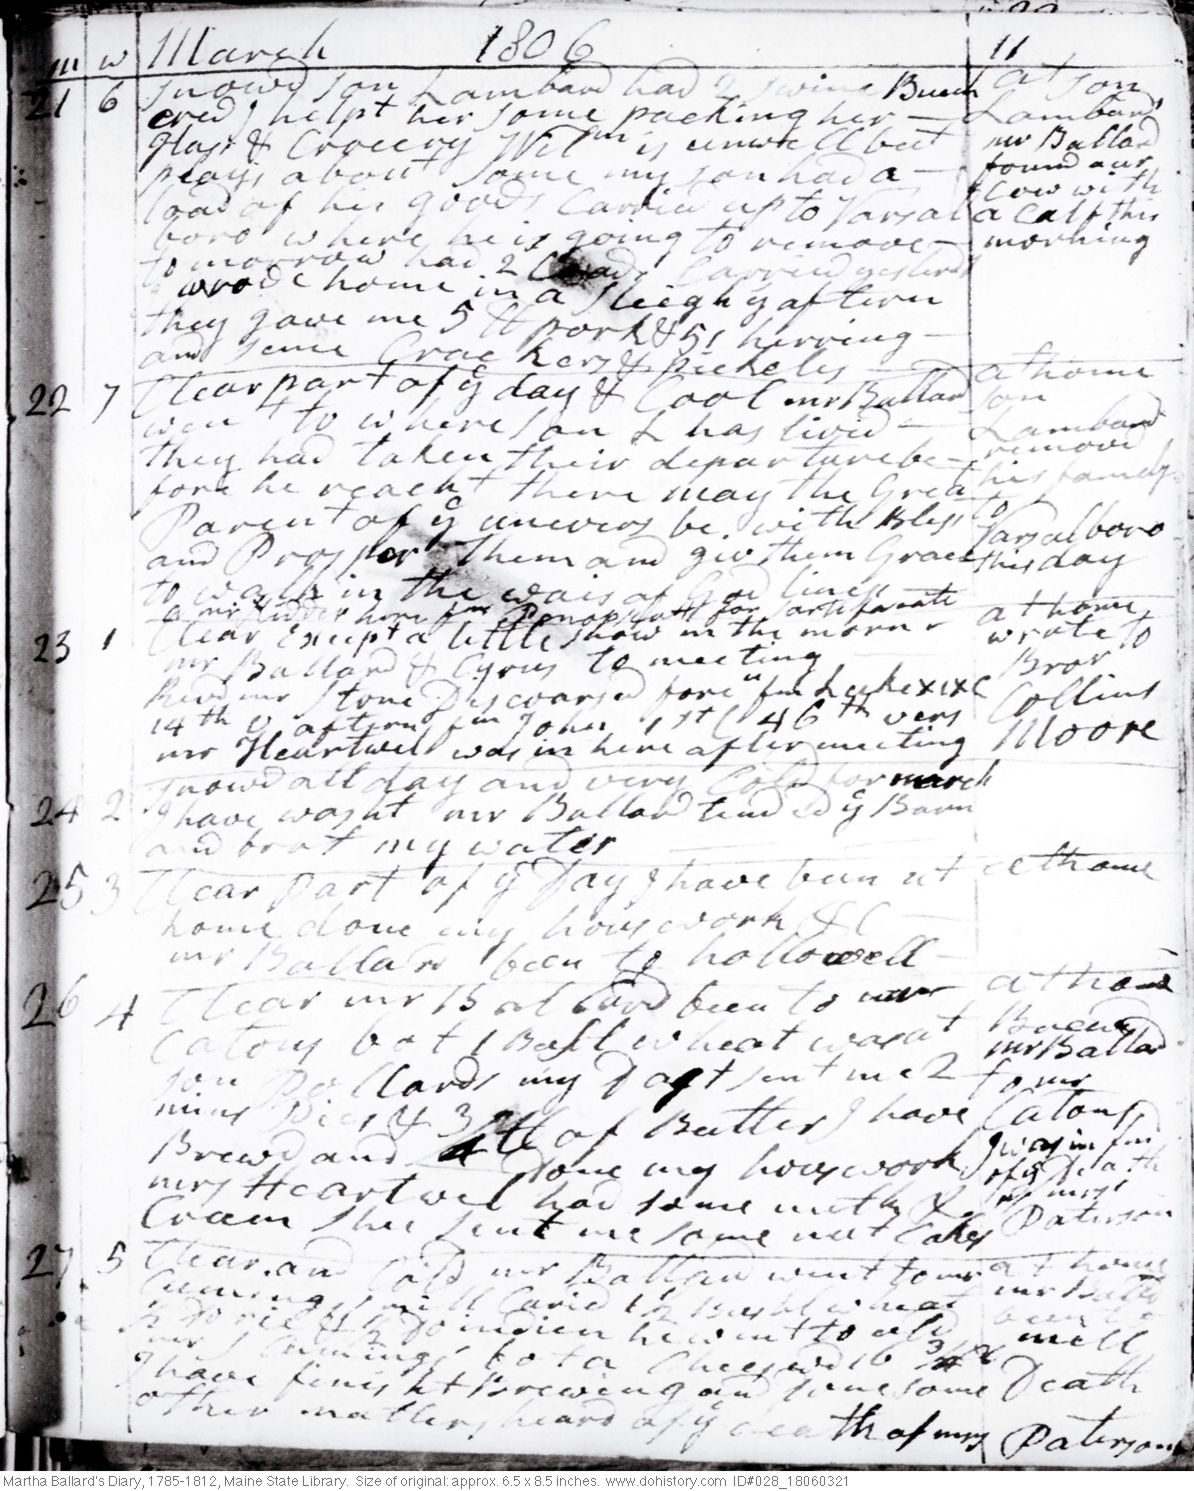 m w March 1806 11
21 6 Snowd son Lambard had 2 swine Buch
cred I helpt her some packing her
Glass & Crocery Wilm is unwell but
plays about some my son had a
load of his goods Carried up to Varsal
boro where he is going to remove
tomorrow had 2 Loads Carried yesterd
I wrode home in a Sleigh ys aftern
they gave me 5 lb pork & 51 herring
and some Crackers & pickels
at son
Lambards
mr Ballard
found our
Cow with
a Calf this
morning
22 7 Clear part of ye day & Cool mr Ballard
went to where son L has livid
they had taken their departure be
fore he reacht there may the Great
Parent of ye univers be with Bless
and Prosper them and giv them Grace
to walk in the wais of God lines
a mr Kidder here fm Penopscutt for
at home
son
Lambard
removd
his family
to
Varsalboro
this day
23 1 Clear Except a little snow in the morn
mr Ballard & Cyrus to meeting
Revd mr Stone Discoarsd forn fm Luke XIX C
14th v aftern fm John 1st C 46th vers
mr Heartwell was in here after meeting
at home
wrote to
Bror
Collins
Moore
24 2 Snowd all day and very Cold for march
I have washt mr Ballard tended ye Barn
and brot my water
25 3 Clear part of ye Day I have been at
home done my houswork &C
mr Ballard been to hollowell
at home
26 4 Clear mr Ballard been to mr
Catons bot 1 Bll wheat was at
son Pollards my Dagt sent me 2
mins Pies & 3 lb of Butter I have
Brewd and done my houswork
mrs Heartwel had some milk &
Cream shee sent me some nut Cakes
at home
Brewd
mr Ballard
to mr
Catons
I was infmd
of ye Death
of mrs
Paterson
27 5 Clear and Cold mr Ballard went to mr
Cumings mill Caried 1½ Bushl wheat
½ Do rie & ½ Do indien he went to old
mr Cumings bot a Chees wd 16 ¾ lb
I have finisht Brewing and done some
other matters heard of ye death of mrs Paterson
at home
mr Balld
been to
mill
Death